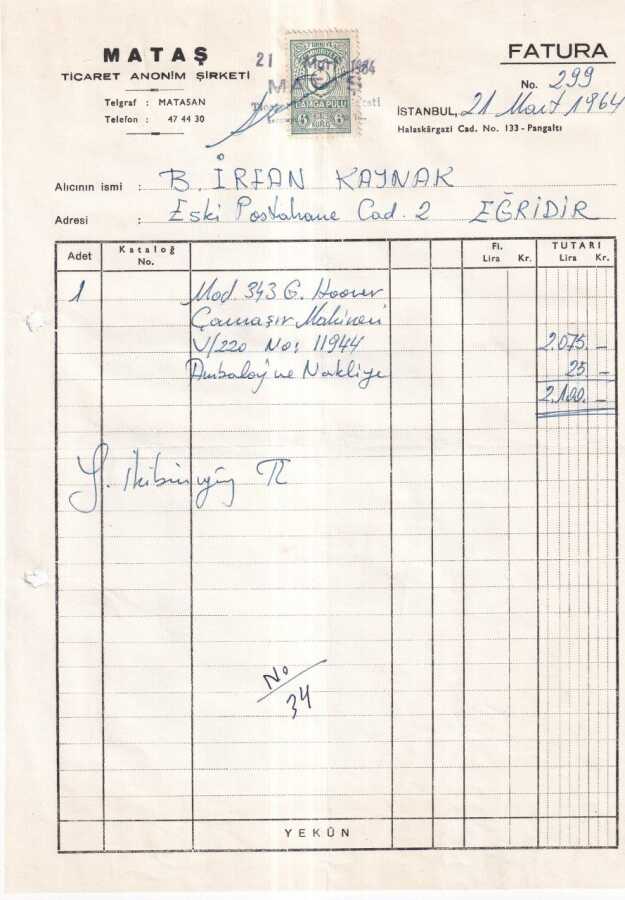 MATAŞ
TİCARET ANONİM ŞİRKETİ
Telgraf : MATASAN
Telefon : 47 44 30
21 Mart 1964
DAMGA PULU
FATURA
No. 299
İSTANBUL, 21 Mart 1964
Halaskârgazi Cad. No. 133 - Pangaltı
Alıcının ismi : B. İRFAN KAYNAK
Adresi : Eski Postahane Cad. 2 EĞRİDİR
Adet Kataloğ No. Fi. Lira Kr. TUTARI Lira Kr.
1 Mod. 343 G. Hoover
Çamaşır Makinesi
V/220 No: 11944 2.075. —
Ambalaj ve Nakliye 25 —
2.100. —
Y. ikibinyüz TL
No
34
YEKÛN